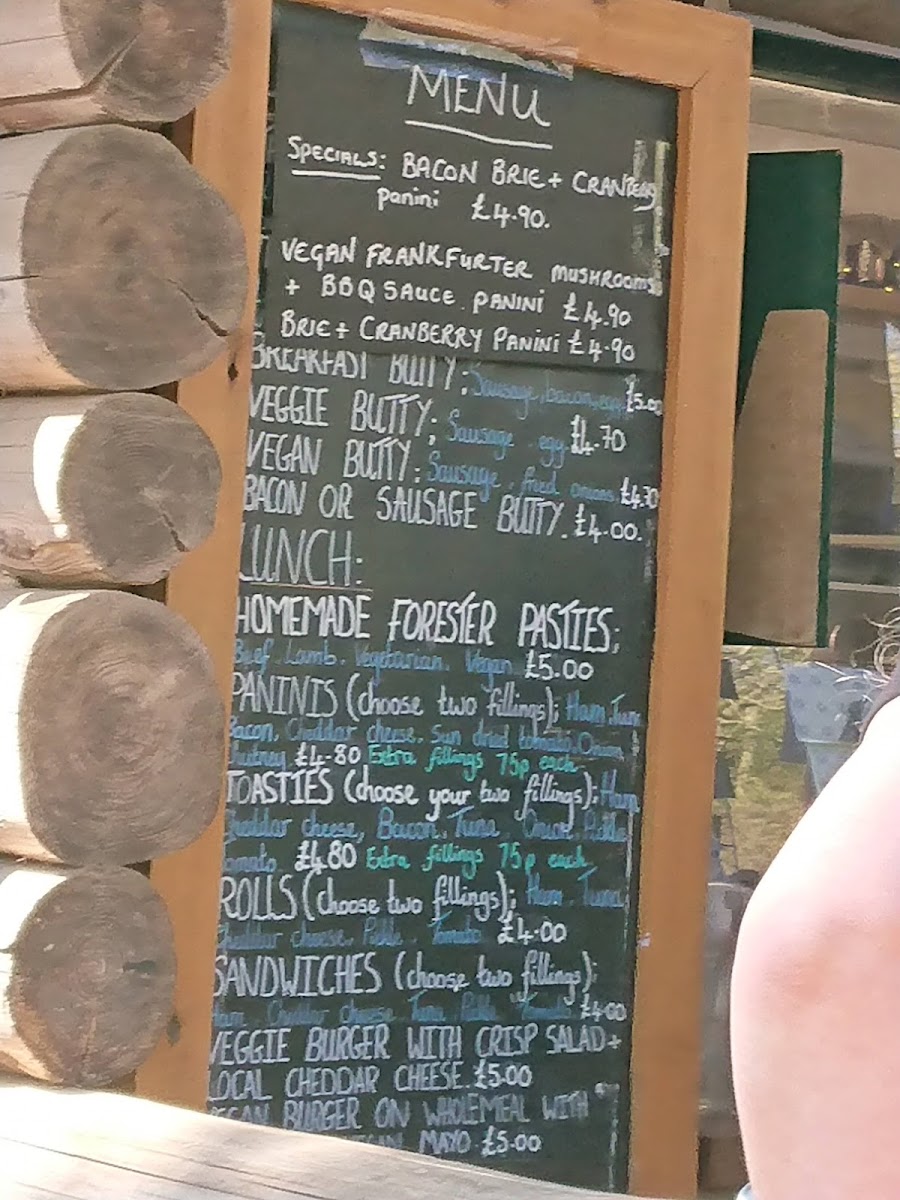 MENU
SPECIALS: BACON BRIE + CRANBERRY
panini £4.90.
VEGAN FRANKFURTER MUSHROOMS
+ BBQ SAUCE PANINI £4.90
BRIE + CRANBERRY PANINI £4.90
BREAKFAST BUTTY: Sausage, bacon, egg £5.00
VEGGIE BUTTY: Sausage. egg. £4.70
VEGAN BUTTY: Sausage. fried onions £4.30
BACON OR SAUSAGE BUTTY. £4.00.
LUNCH:
HOMEMADE FORESTER PASTIES:
Beef. Lamb. Vegetarian. Vegan £5.00
PANINIS (choose two fillings): Ham, Tuna
Bacon, Cheddar cheese, Sun dried tomato, Onion
Chutney £4.80 Extra fillings 75p each
TOASTIES (choose your two fillings): Ham
Cheddar cheese, Bacon. Tuna. Onion. Pickle
Tomato £4.80 Extra fillings 75p each
ROLLS (choose two fillings): Ham. Tuna
Cheddar cheese. Pickle. Tomato £4.00
SANDWICHES (choose two fillings):
Ham. Cheddar cheese. Tuna. Pickle. Tomato. £4.00
VEGGIE BURGER WITH CRISP SALAD +
LOCAL CHEDDAR CHEESE. £5.00
VEGAN BURGER ON WHOLEMEAL WITH
VEGAN MAYO £5.00